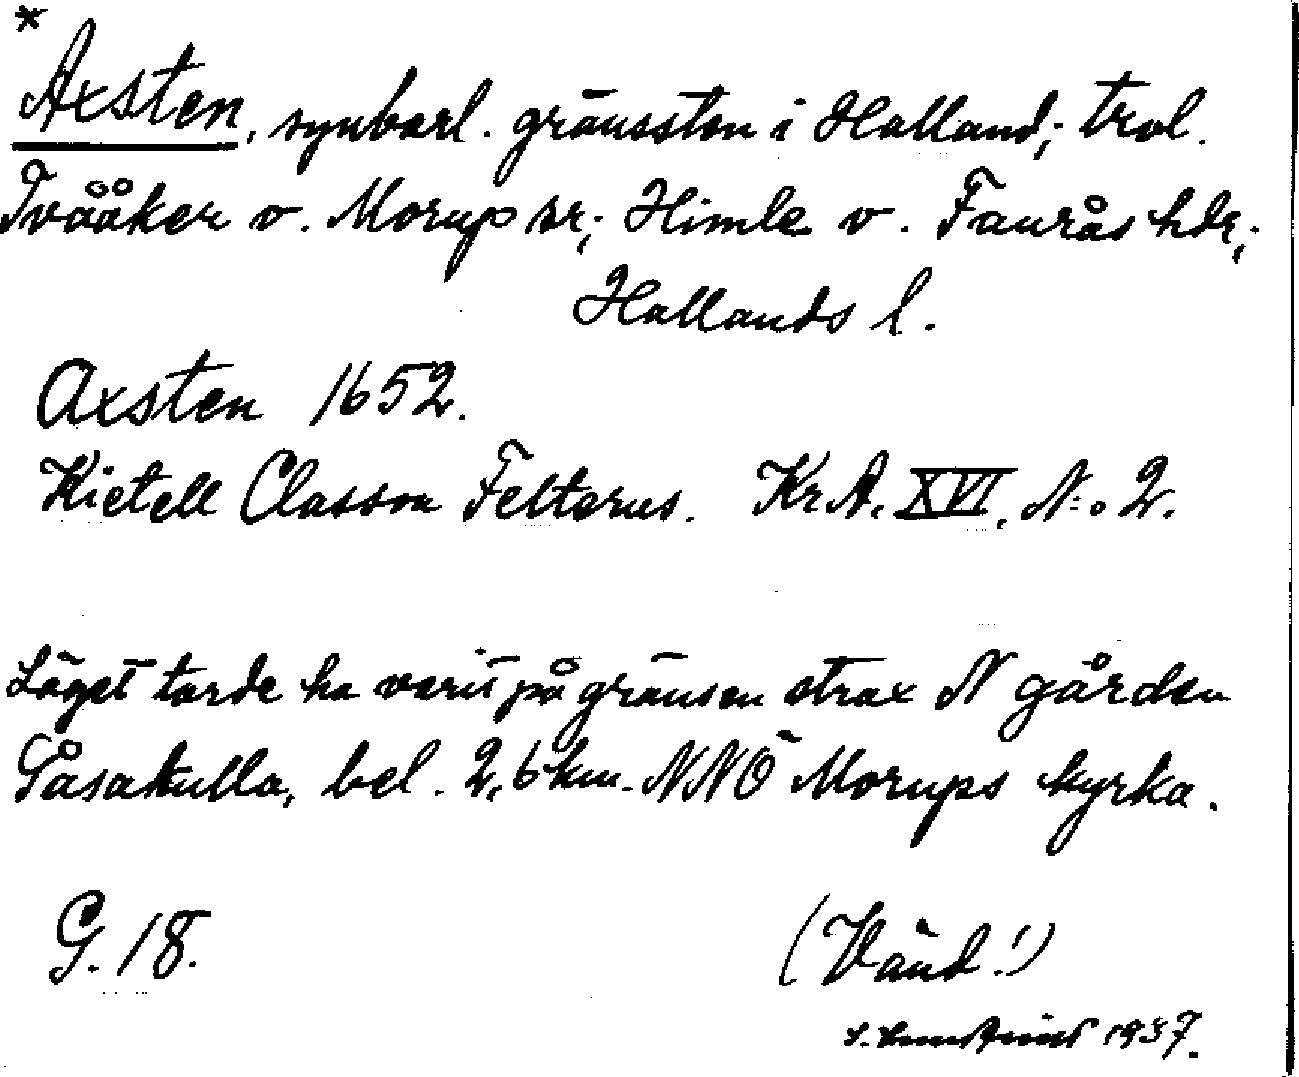 *
Axsten, synbarl. gränssten i Halland; trol.
Tvååker o. Morup sr; Himle o. Faurås hdr;
Hallands l.
Axsten 1652.
Kietell Classon Felterus. KrA. XVI. N:o 2.
Läget torde ha varit på gränsen strax N gården
Gåsakulla, bel. 2,6 km. NNÖ Morups kyrka.
G. 18.
(Vänd!)
1937.